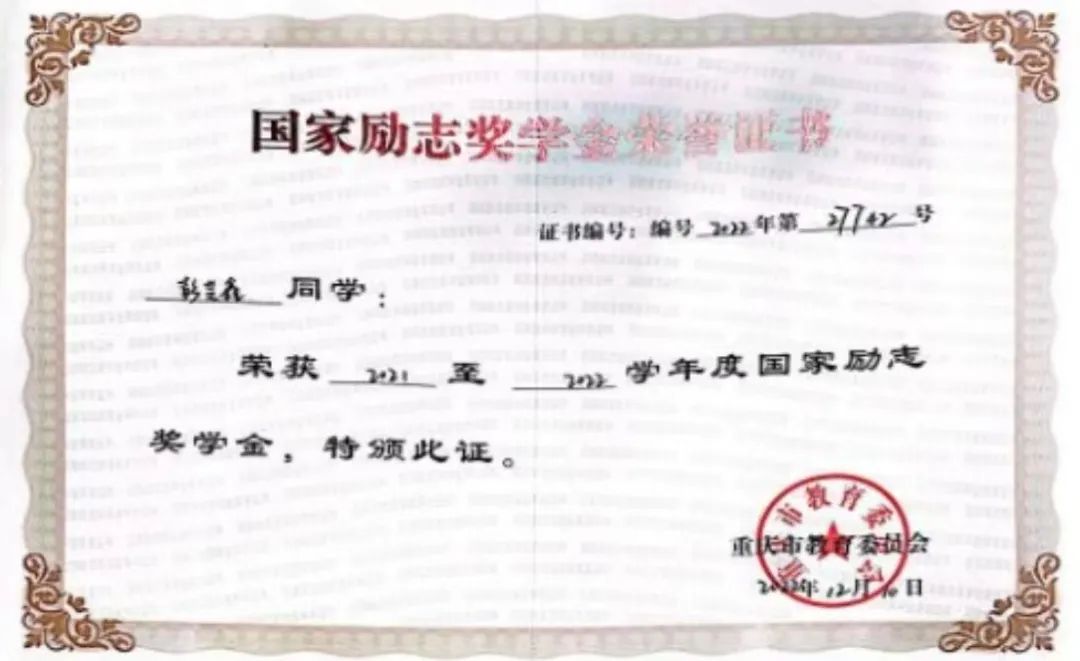 国家励志奖学金荣誉证书
证书编号：编号 2022 年第 27742 号
同学：
荣获 2021 至 2022 学年度国家励志
奖学金，特颁此证。
市教育委
重庆市教育委员会
2022年12月10日